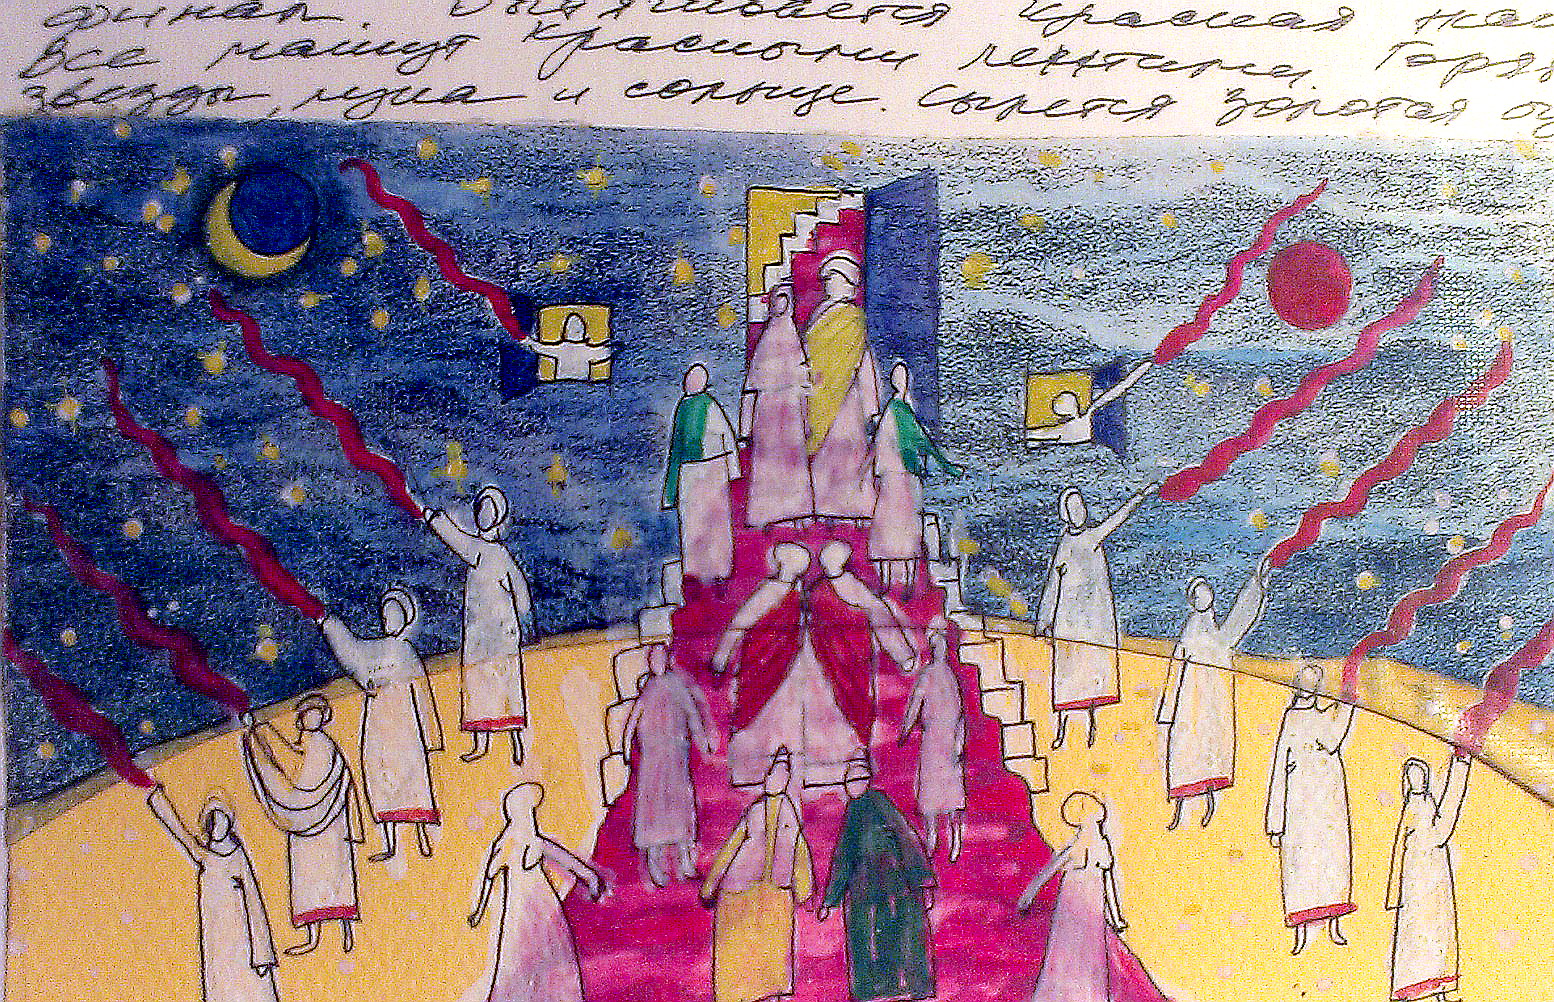 финал. Вытягивается красная
Все машут красными лентами. Горят
звезды, луна и солнце. Сыпется золотая